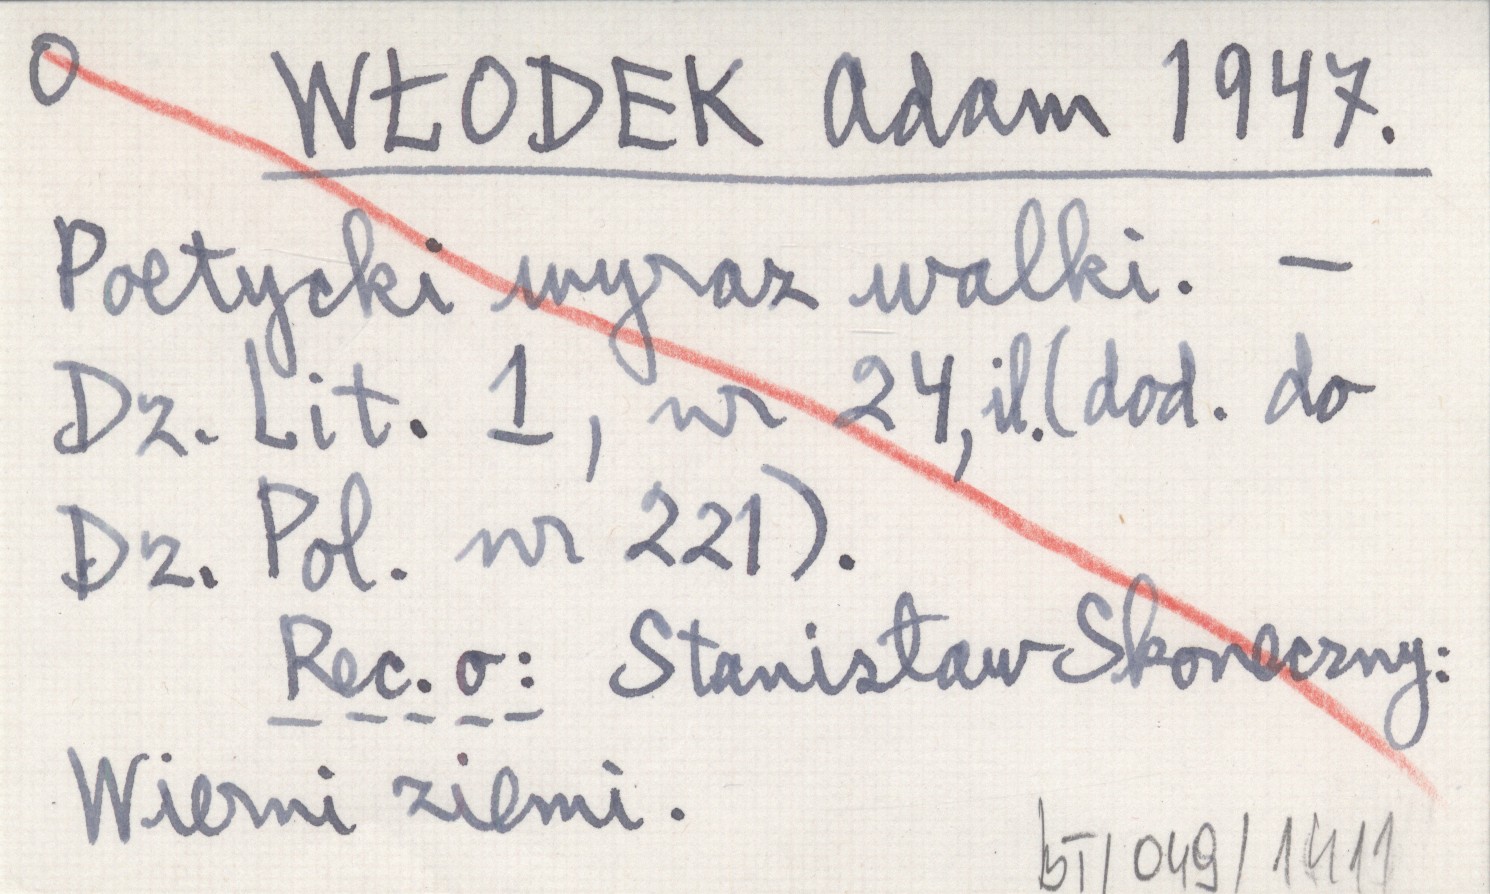 O WŁODEK Adam 1947.
Poetycki wyraz walki. –
Dz. Lit. 1, nr 24, il. (dod. do
Dz. Pol. nr 221).
Rec. o: Stanisław Skoneczny:
Wierni ziemi.
bT/049/1411